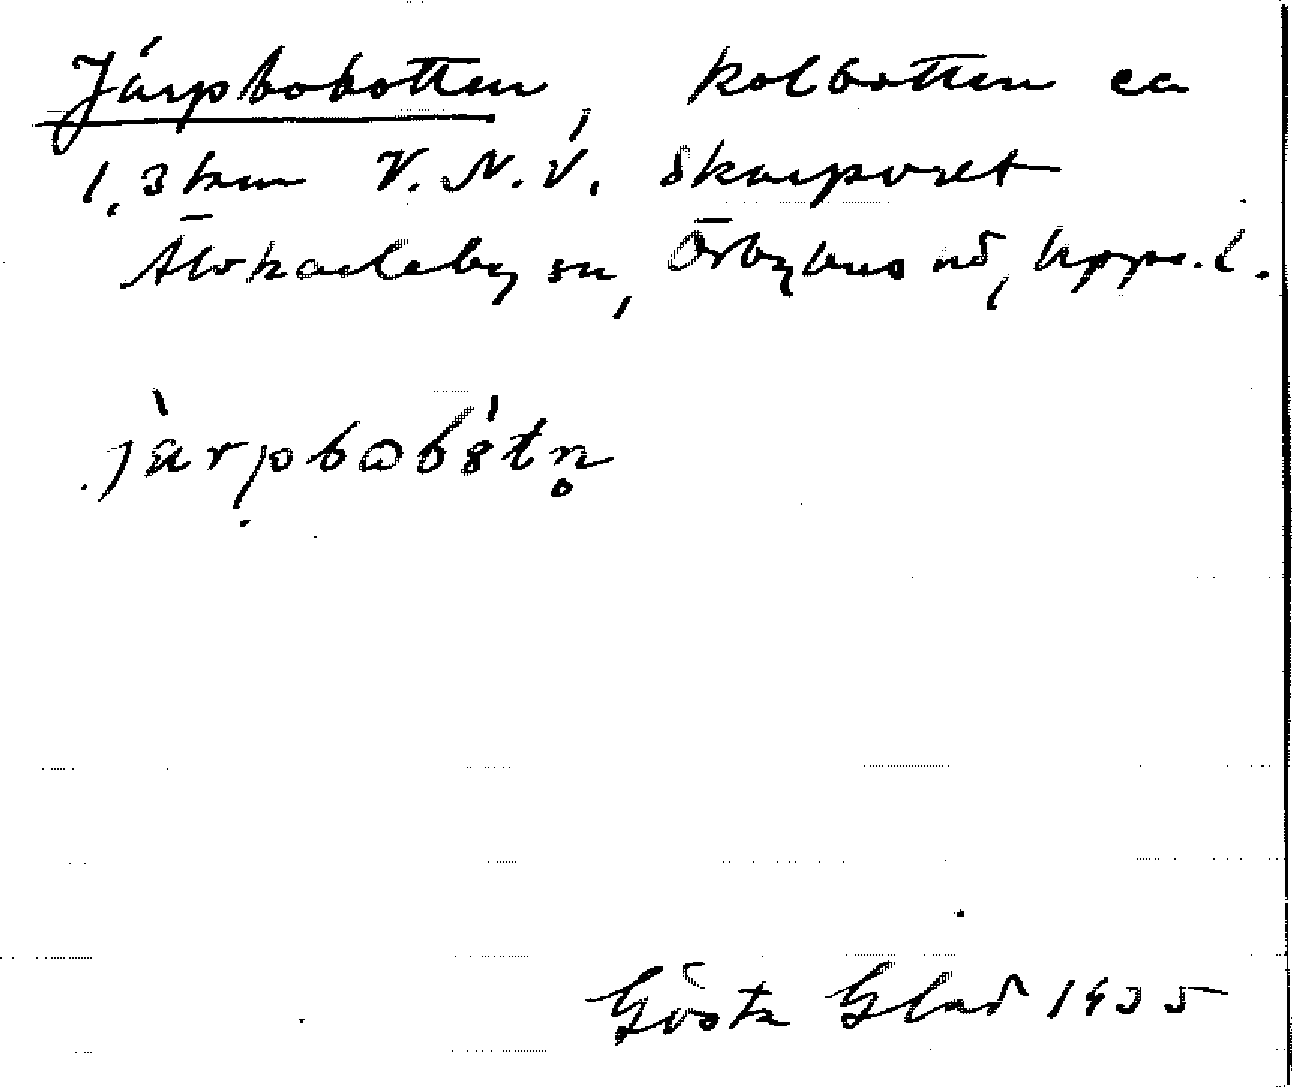 Järpbobotten, kolbotten ca
1,3 km V.N.V. Skarporet
Älvkarleby sn, Örbyhus hd, Uppl.
jàrpbɷbótn̥
Gösta Glad 1935